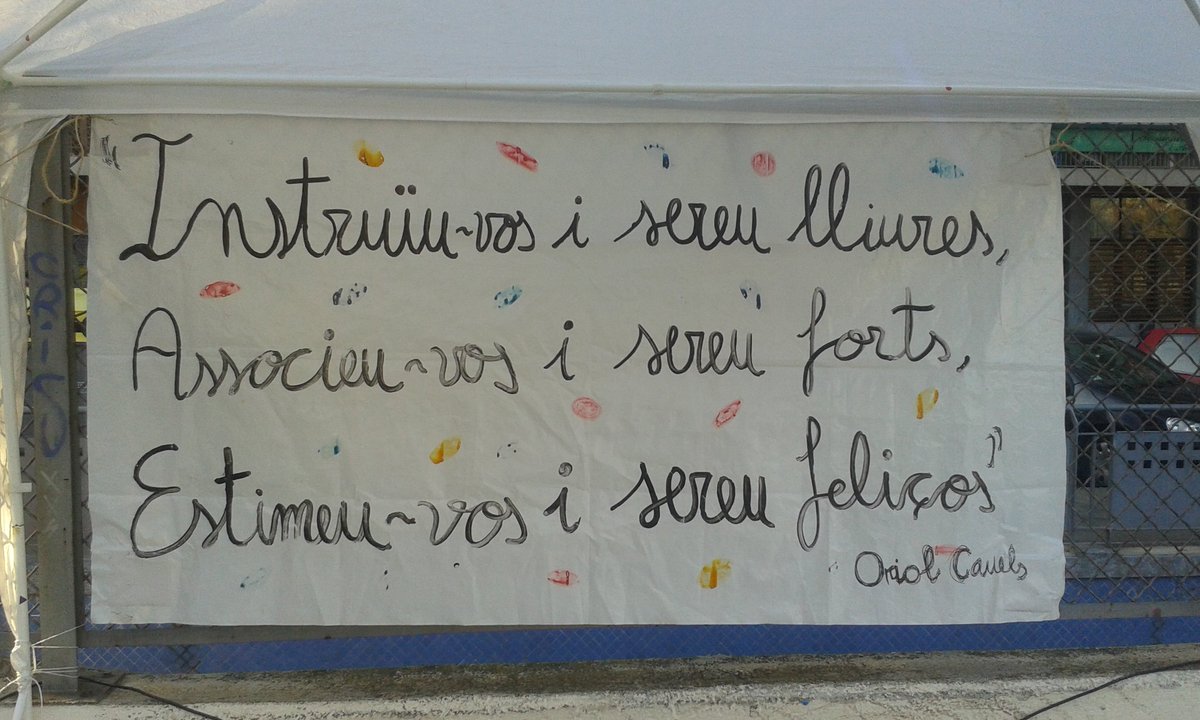 "Instruïu-vos i sereu lliures,
Associeu-vos i sereu forts,
Estimeu-vos i sereu feliços"
Oriol Canals